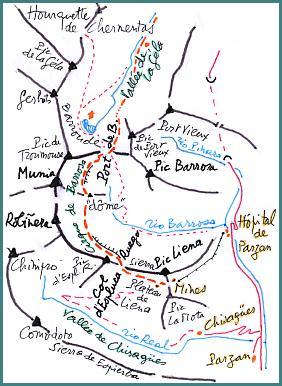 Hourquette
de Chermentas
Pic
de la Géla
Vallée de
la Géla
Gerbats
Barroude
Port Vieux
Pic
de Port
Vieux
Pic de
Troumouse
Port de B.
rio Pinara
Munia
Pic Barrosa
"dôme"
Robiñera
Circo de Barrosa
rio Barrosa
Hôpital
de
Parzan
Ruego
Sierra
Pic Liena
Chinipro
Pic
d'Espluca
Col
d'Espluca
Plateau
de
Liena
Mines
Pic
La Mota
Comodoto
Vallée de Chisagües
rio Real
Chisagües
Sierra de Espierba
Parzan